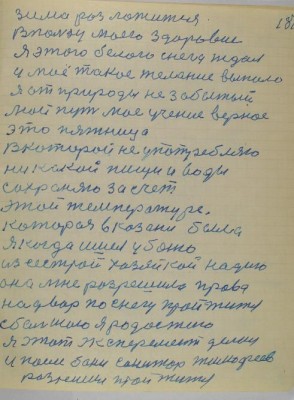 181
зима разложится.
в пользу моего здоровие
Я этого белого снега ждал
и моё такое желание выпало
я от природы не забытый
мой путь мое учение верное
это пятница
в которой не употребляю
ни какой пищи и воды
сохраняю за счет
этой температуре,
которая в казани была
Я когда шли убожо
из сестрой хозяйкой надию
она мне разрешила права
на двар по снегу пройтити
с большою я родостего
я этот эксперемент делаю
и после бани санитор
разрешил пройтити